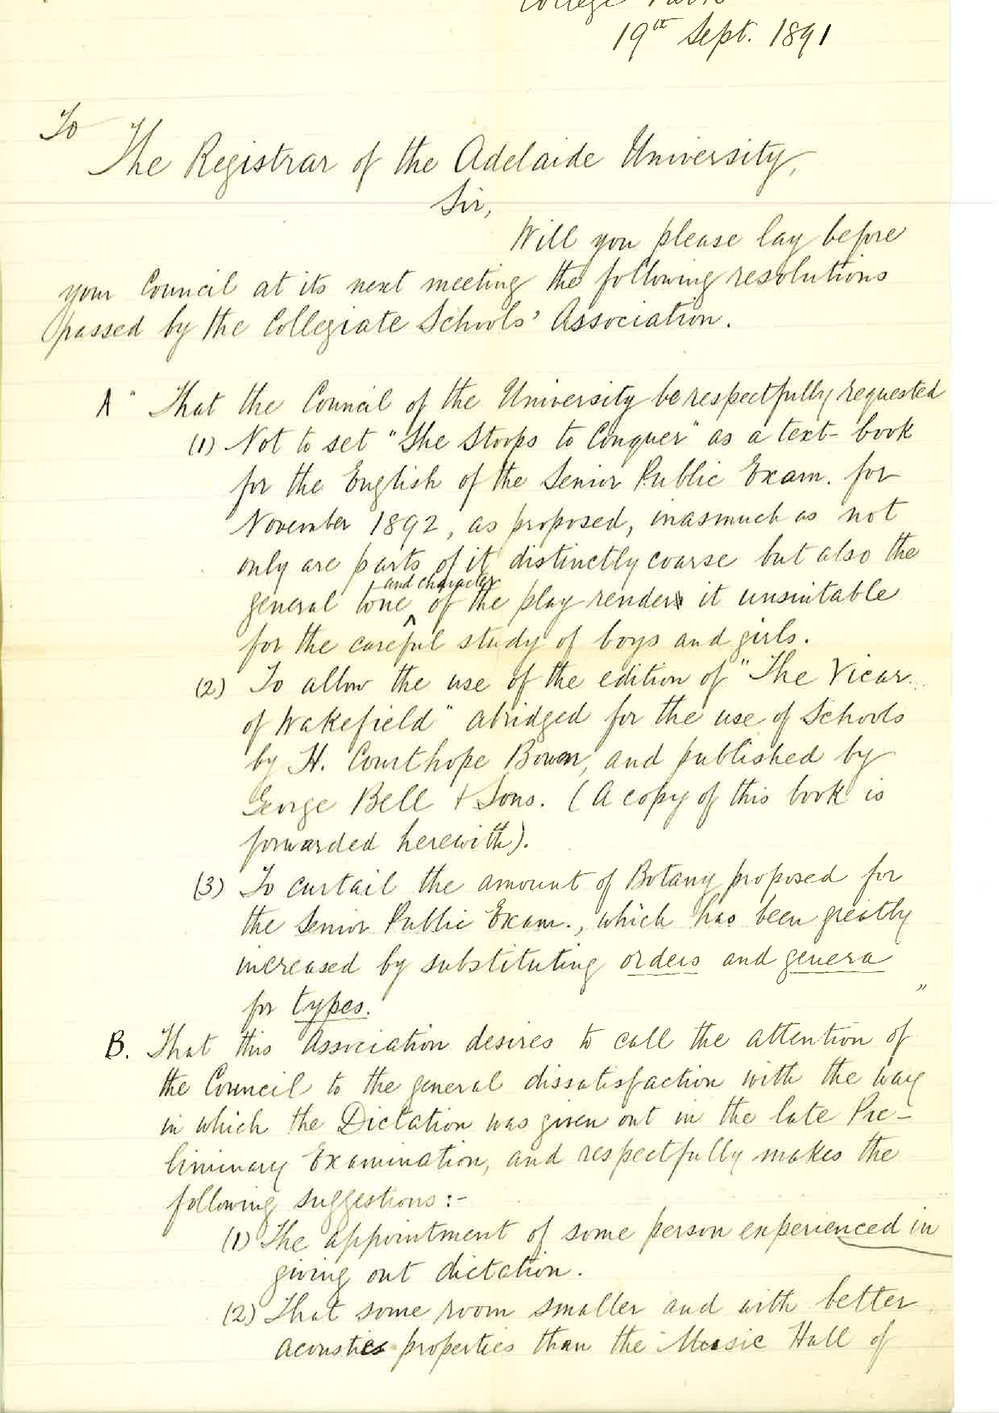 College Park
19th Sept. 1891
To
The Registrar of the Adelaide University,
Sir,
Will you please lay before
your Council at its next meeting the following resolutions
passed by the Collegiate Schools' Association.
A " That the Council of the University be respectfully requested
(1) Not to set "She Stoops to Conquer" as a text-book
for the English of the Senior Public Exam. for
November 1892, as proposed, inasmuch as not
only are parts of it distinctly coarse but also the
and character
general tone ‸ of the play render it unsuitable
for the careful study of boys and girls.
(2) To allow the use of the edition of "The Vicar
of Wakefield" abridged for the use of Schools
by H. Courthope Bowen, and published by
George Bell & Sons. (A copy of this book is
forwarded herewith).
(3) To curtail the amount of Botany proposed for
the Senior Public Exam., which has been greatly
increased by substituting orders and genera
for types. "
B. That this Association desires to call the attention of
the Council to the general dissatisfaction with the way
in which the Dictation was given out in the late Pre-
liminary Examination, and respectfully makes the
following suggestions:-
(1) The appointment of some person experienced in
giving out dictation.
(2) That some room smaller and with better
acoustic properties than the Music Hall of